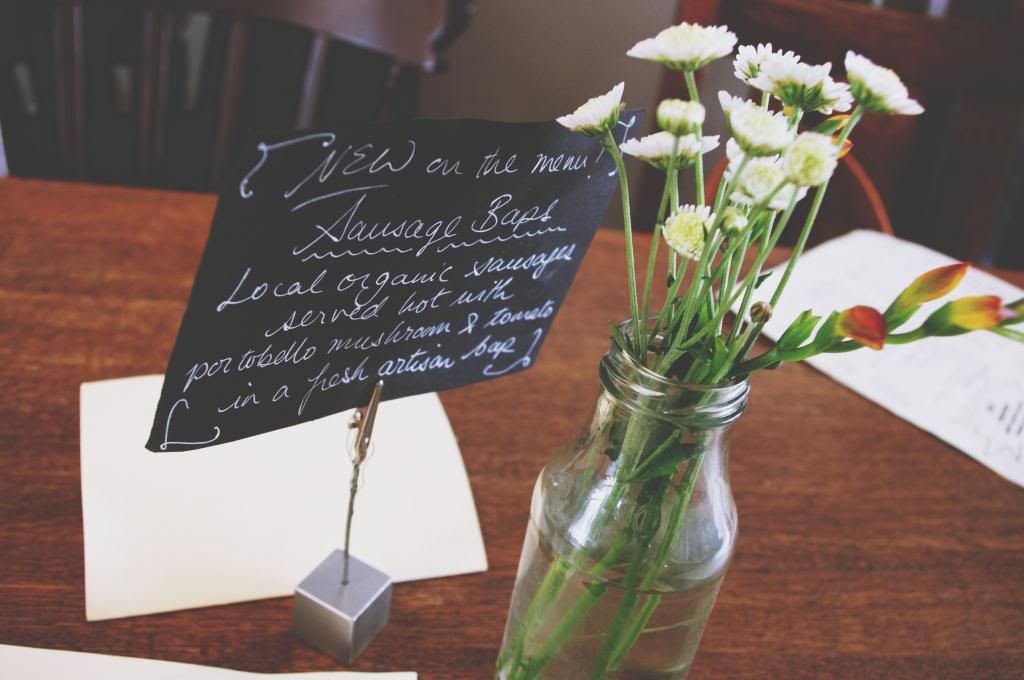 NEW on the menu!
Sausage Baps
Local organic sausages
served hot with
portobello mushroom & tomato
in a fresh artisan bap